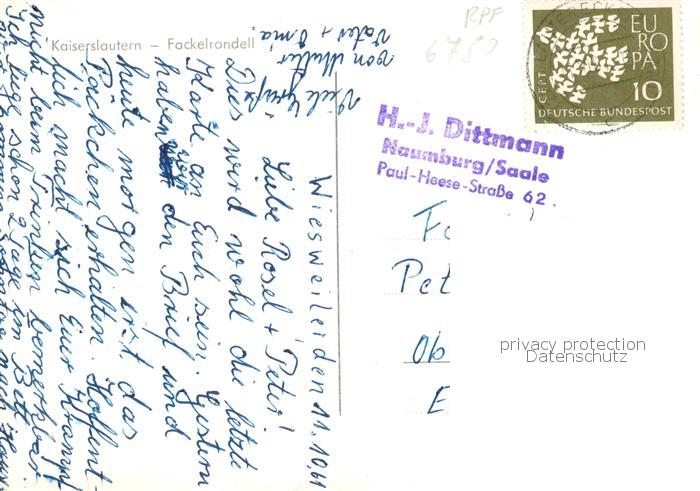 Kaiserslautern – Fackelrondell
RPF
6750
EUROPA
CEPT
10
DEUTSCHE BUNDESPOST
H.-J. Dittmann
Naumburg/Saale
Paul-Heese-Straße 62.
Pet
Ob
E
privacy protection
Datenschutz
Wiesweiler den 11.10.61
Liebe Rosel + Peter!
Dies wird wohl die letzte
Karte an Euch sein. Gestern
haben wir den Brief und
heute morgen erst das
Päckchen erhalten. Hoffent-
lich macht sich Euer Krampf
nicht beim Trinken bemerkbar.
Ich liege schon 2 Tage im Bett
Viele Grüße
von Mutter
Vater + Oma